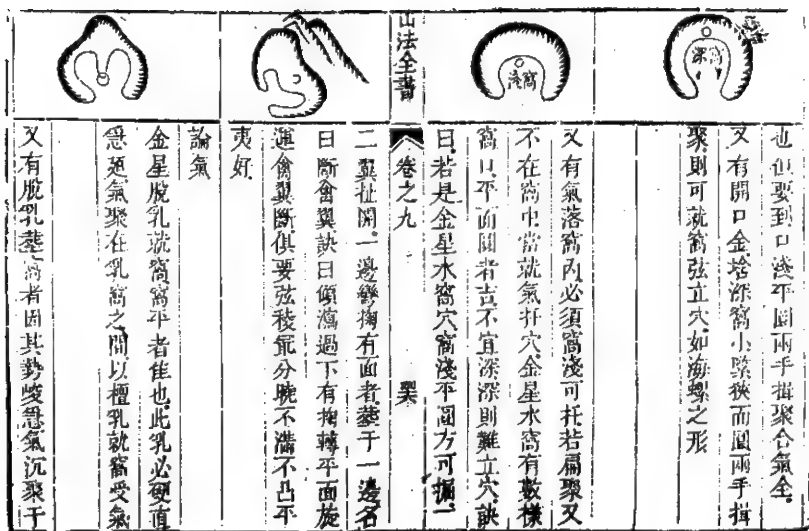 深窩
也但要到口淺平圓兩手揖聚合氣全
又有開口金捨深窩小緊狹而圓兩手揖
聚則可就窩弦立穴如海螺之形
淺窩
又有氣落窩內必須窩淺可扦若扁聚又
不在窩中當就氣扦穴金星水窩有數樣
窩口平面圓者吉不宜深深則難立穴訣
曰若是金星水窩穴窩淺平圓方可掘一
山法全書
卷之九
二翼扯開一邊彎抱有面者葬于一邊名
曰斷禽翼訣曰傾瀉過下有抱轉平面旋
運禽翼斷俱要弦稜能分曉不滿不凸平
夷好
論氣
金星脫乳就窩窩平者佳也此乳必硬直
急廹氣聚在乳窩之間以檀乳就窩受氣
又有脫乳葬窩者因其勢峻急氣沉聚于